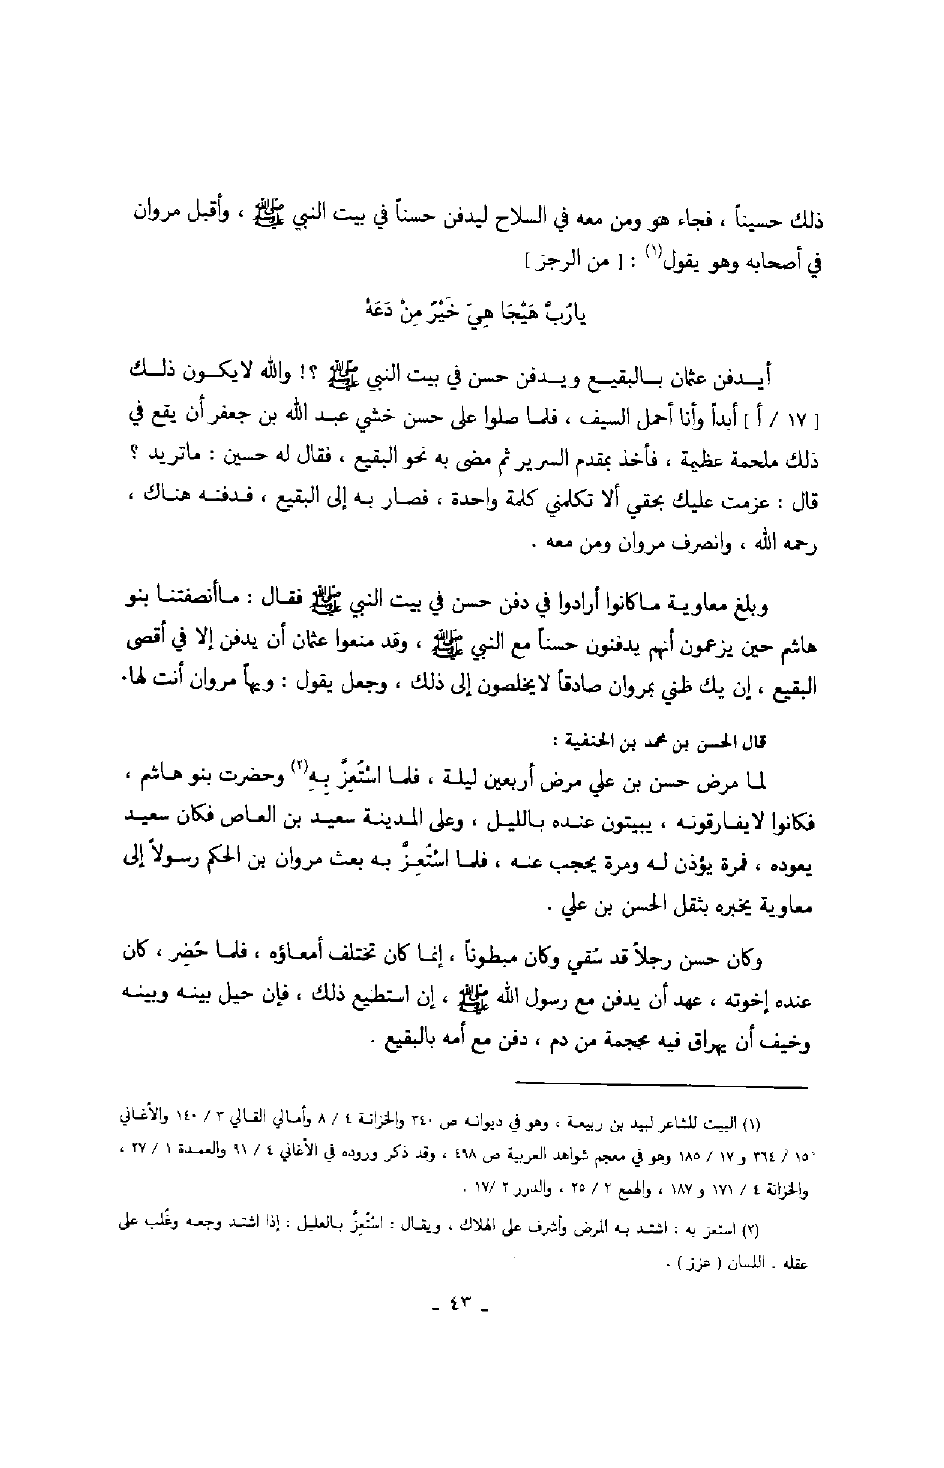 ذلك حسيناً ، فجاء هو ومن معه في السلاح ليدفن حسناً في بيت النبي ﷺ ، وأقبل مروان
في أصحابه وهو يقول(١) : [ من الرجز ]
يارُبَّ هَيْجَا هِيَ خَيْرٌ مِنْ دَعَهْ
أيدفن عثمان بالبقيع ويدفن حسن في بيت النبي ﷺ ؟! والله لايكون ذلك
[ ١٧ / أ ] أبداً وأنا أحمل السيف ، فلما صلوا على حسن خشي عبد الله بن جعفر أن يقع في
ذلك ملحمة عظيمة ، فأخذ بمقدم السرير ثم مضى به نحو البقيع ، فقال له حسين : ماتريد ؟
قال : عزمت عليك بحقي ألا تكلمني كلمة واحدة ، فصار به إلى البقيع ، فدفنه هناك ،
رحمه الله ، وانصرف مروان ومن معه .
وبلغ معاوية ماكانوا أرادوا في دفن حسن في بيت النبي ﷺ فقال : ماأنصفتنا بنو
هاشم حين يزعمون أنهم يدفنون حسناً مع النبي ﷺ ، وقد منعوا عثمان أن يدفن إلا في أقصى
البقيع ، إن يك ظني بمروان صادقاً لايخلصون إلى ذلك ، وجعل يقول : ويهاً مروان أنت لها .
قال الحسن بن محمد بن الحنفية :
لما مرض حسن بن علي مرض أربعين ليلة ، فلما اسْتُعِزَّ به(٢) وحضرت بنو هاشم ،
فكانوا لايفارقونه ، يبيتون عنده بالليل ، وعلى المدينة سعيد بن العاص فكان سعيد
يعوده ، فمرة يؤذن له ومرة يحجب عنه ، فلما اسْتُعِزَّ به بعث مروان بن الحكم رسولاً إلى
معاوية يخبره بثقل الحسن بن علي .
وكان حسن رجلاً قد سُقي وكان مبطوناً ، إنما كان تختلف أمعاؤه ، فلما حُضِر ، كان
عنده إخوته ، عهد أن يدفن مع رسول الله ﷺ ، إن استطيع ذلك ، فإن حيل بينه وبينه
وخيف أن يهراق فيه محجمة من دم ، دفن مع أمه بالبقيع .
(١) البيت للشاعر لبيد بن ربيعة ، وهو في ديوانه ص ٣٤٠ والخزانة ٤ / ٨ وأمالي القالي ٣ / ١٤٠ والأغاني
١٥ / ٣٦٤ و ١٧ / ١٨٥ وهو في معجم شواهد العربية ص ٤٩٨ ، وقد ذكر وروده في الأغاني ٤ / ٩١ والعمدة ١ / ٢٧ ،
والخزانة ٤ / ١٧١ و ١٨٧ ، والهمع ٢ / ٢٥ ، والدرر ٢ / ١٧ .
(٢) استعز به : اشتد به المرض وأشرف على الهلاك ، ويقال : اسْتُعِزَّ بالعليل : إذا اشتد وجعه وغُلب على
عقله . اللسان ( عزز ) .
ـ ٤٣ ـ